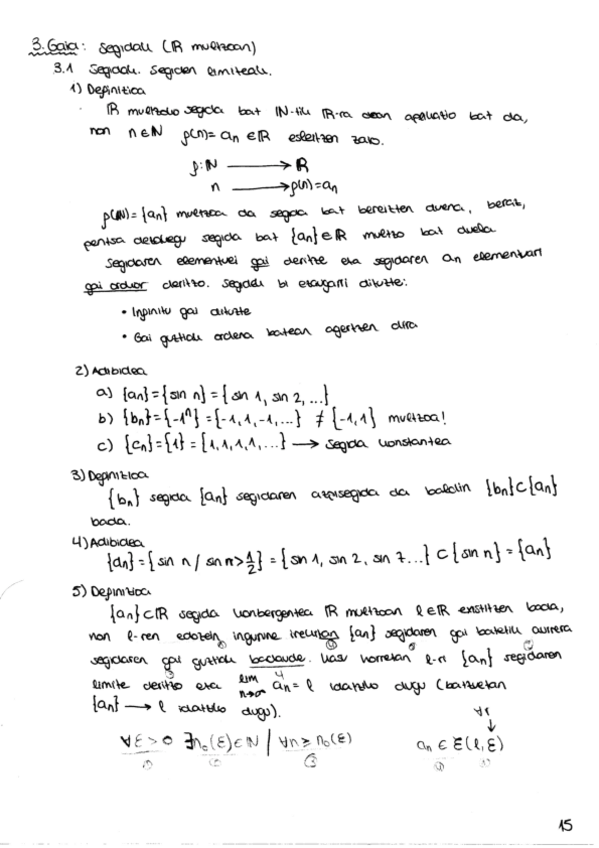 3. Gaia: Segidak (ℝ multzoan)
3.1 Segidak. Segiden limiteak.
1) Definizioa
ℝ multzoko segida bat ℕ-tik ℝ-ra doan aplikazio bat da,
non n∈ℕ ρ(n)=aₙ∈ℝ esleitzen zaio.
ρ: ℕ ⟶ ℝ
n ⟶ ρ(n)=aₙ
ρ(ℕ)={aₙ} multzoa da segida bat bereizten duena, beraz,
pentsa dezakegu segida bat {aₙ}∈ℝ multzo bat dela
Segidaren elementuei gai deritze eta segidaren aₙ elementuari
gai orokor deritzo. Segidek bi ezaugarri dituzte:
• Infinitu gai dituzte
• Gai guztiak ordena batean agertzen dira
2) Adibidea
a) {aₙ}={sin n}={sin 1, sin 2, ...}
b) {bₙ}={-1ⁿ}={-1,1,-1,...} ≠ {-1,1} multzoa!
c) {cₙ}={1}={1,1,1,1,...} ⟶ segida konstantea
3) Definizioa
{bₙ} segida {aₙ} segidaren azpisegida da baldin {bₙ}⊂{aₙ}
bada.
4) Adibidea
{aₙ}={sin n / sin n>1/2}={sin 1, sin 2, sin 7...}⊂{sin n}={aₙ}
5) Definizioa
{aₙ}⊂ℝ segida konbergentea ℝ multzoan ℓ∈ℝ existitzen bada,
non ℓ-ren edozein ingurune irekitan {aₙ} segidaren gai batetik aurrera
segidaren gai guztiak badaude. Kasu horretan ℓ-ri {aₙ} segidaren
limite deritzo eta lim n→∞ aₙ=ℓ idatziko dugu (batzuetan
{aₙ} ⟶ ℓ idatziko dugu).
∀ε>0 ∃n₀(ε)∈ℕ / ∀n≥n₀(ε) aₙ∈ξ(ℓ,ε)
15